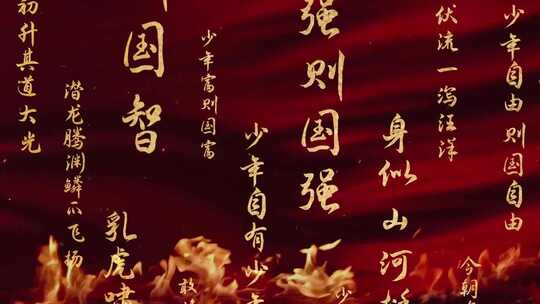 少年自由则国自由
今朝
伏流一泻汪洋
身似山河
少
强则国强
少年自有少年
敢
少年富则国富
国智
乳虎啸
潜龙腾渊鳞爪飞扬
初升其道大光